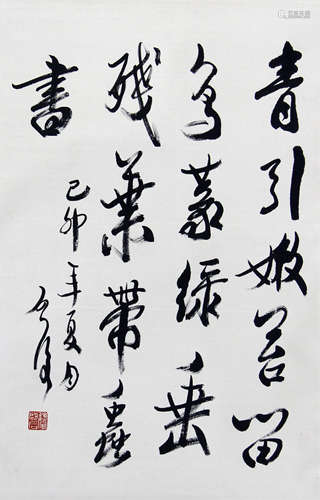 青引嫩苔留
鸟篆绿垂
残叶带虫
書
己卯年夏月